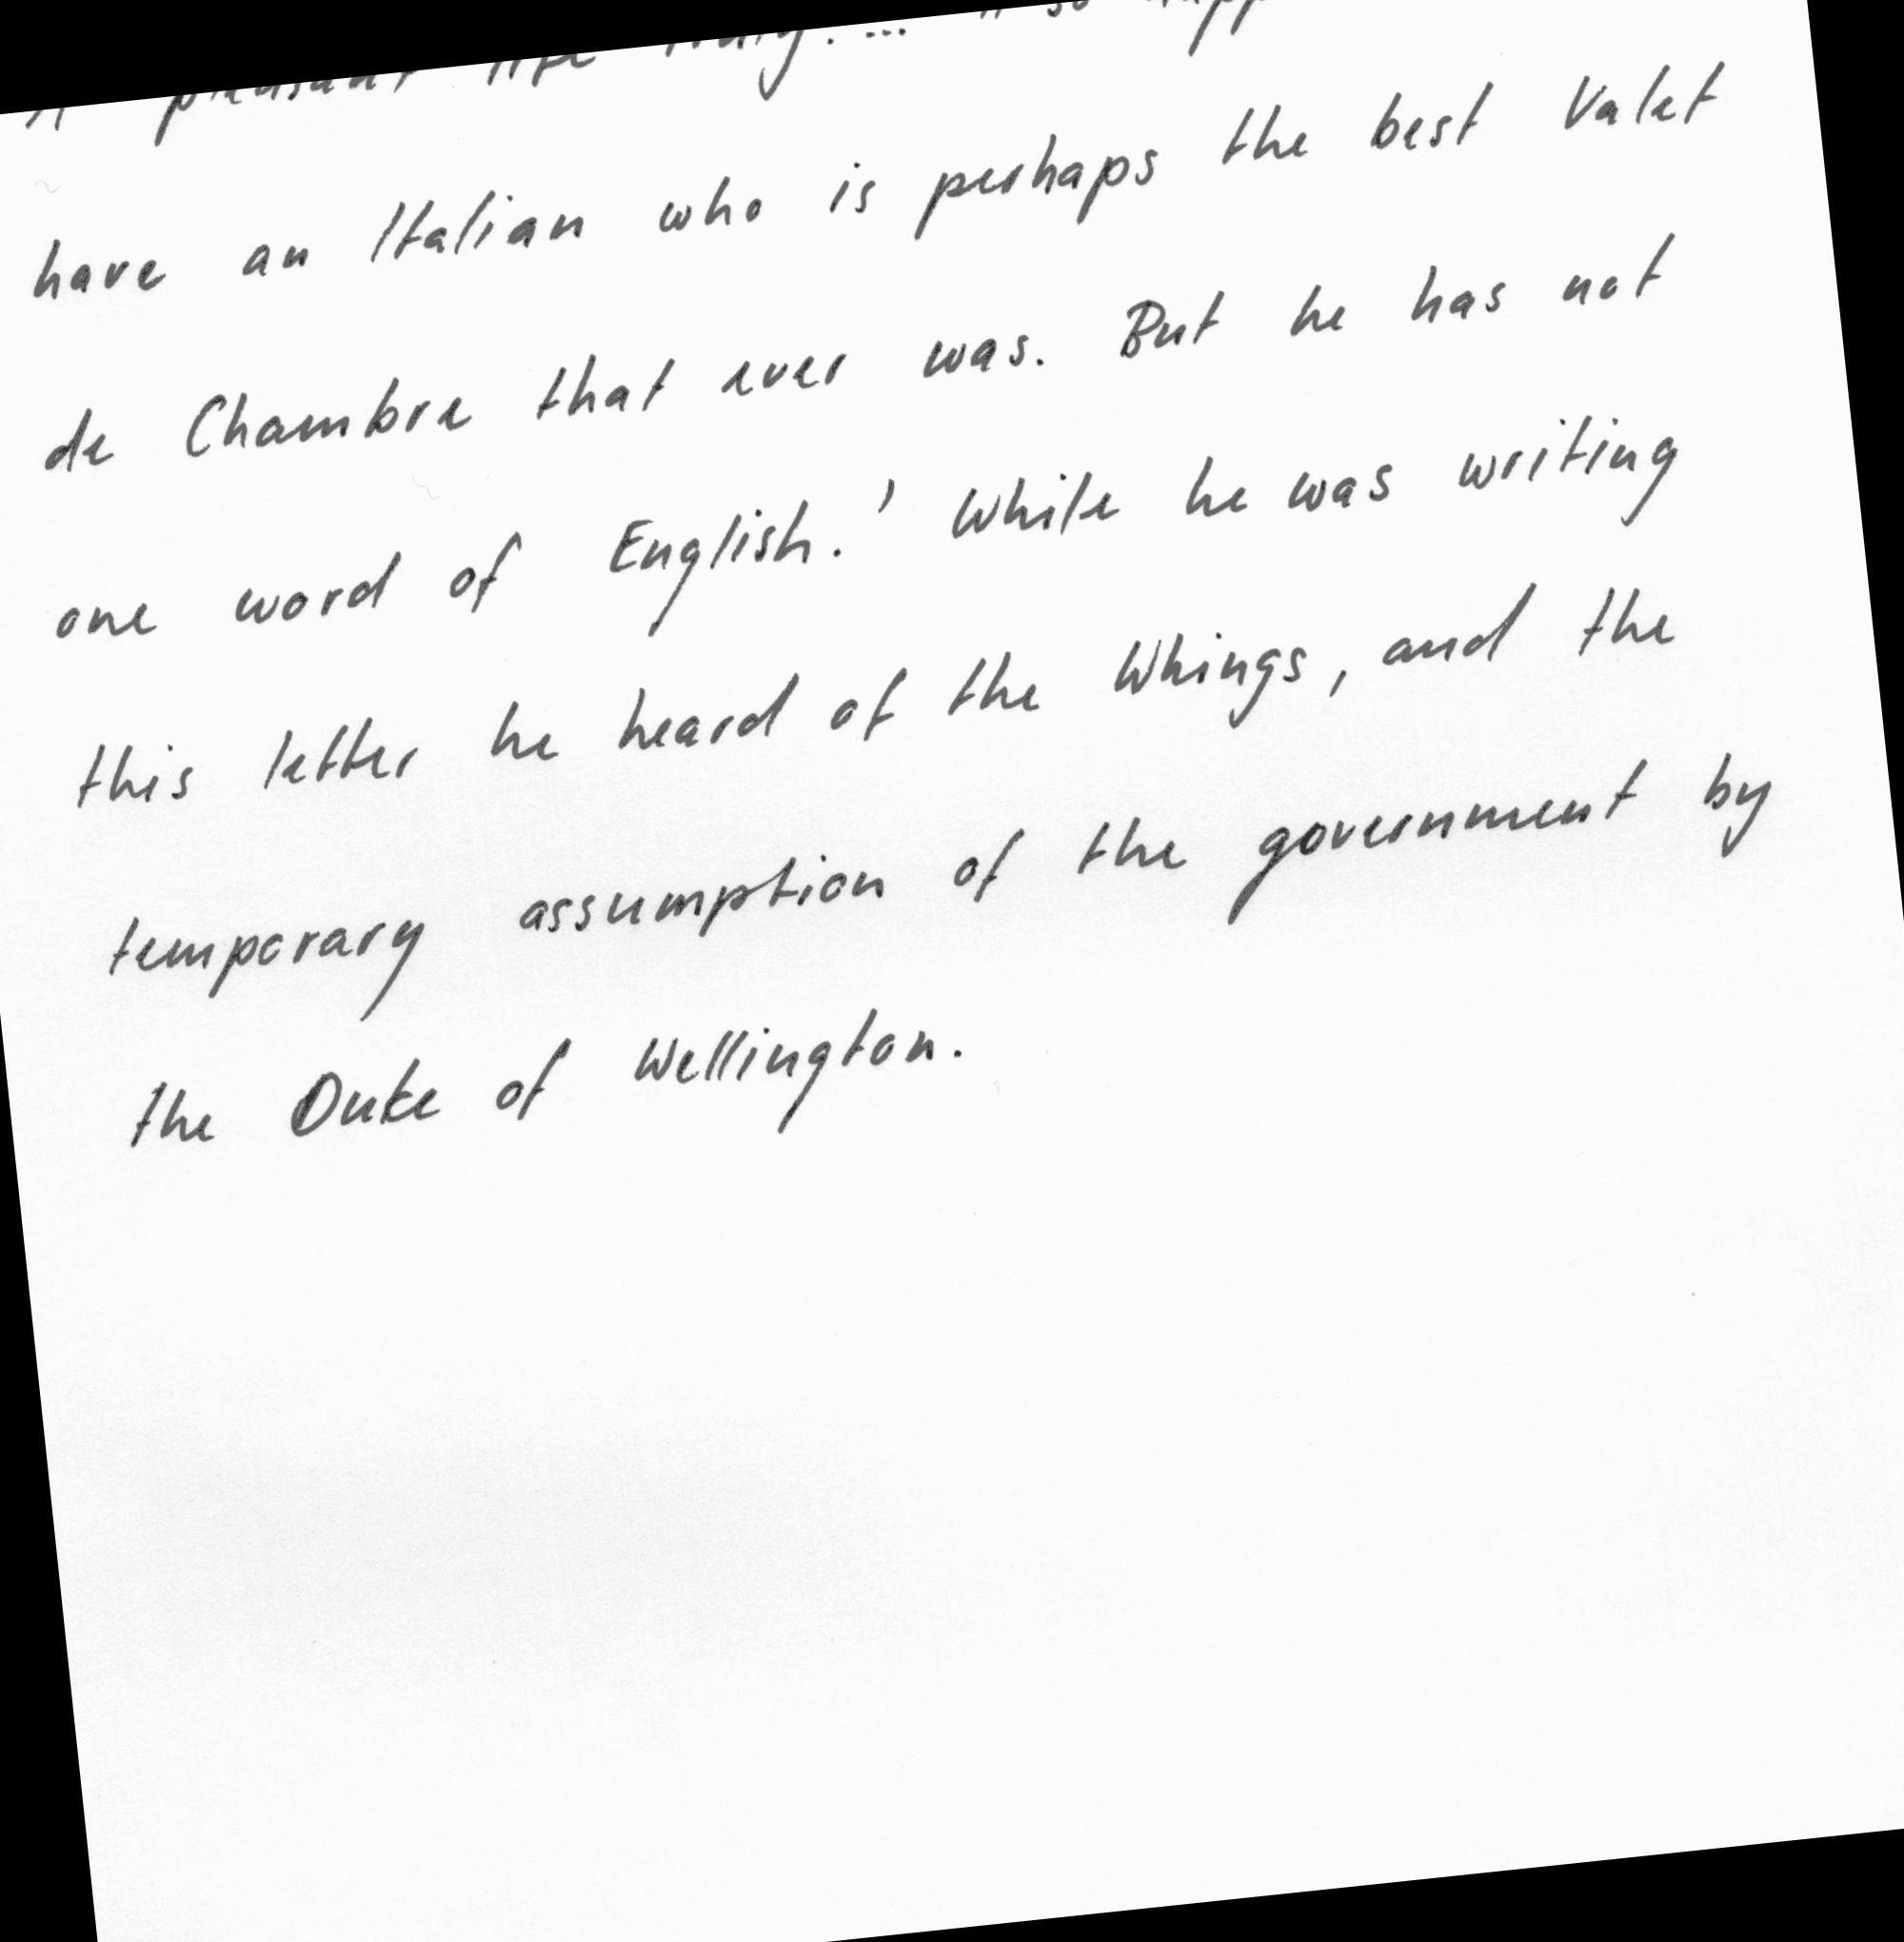 A pleasant life truly! ... so
have an Italian who is perhaps the best Valet
de Chambre that ever was. But he has not
one word of English.' While he was writing
this letter he heard of the Whings, and the
temporary assumption of the government by
the Duke of Wellington.